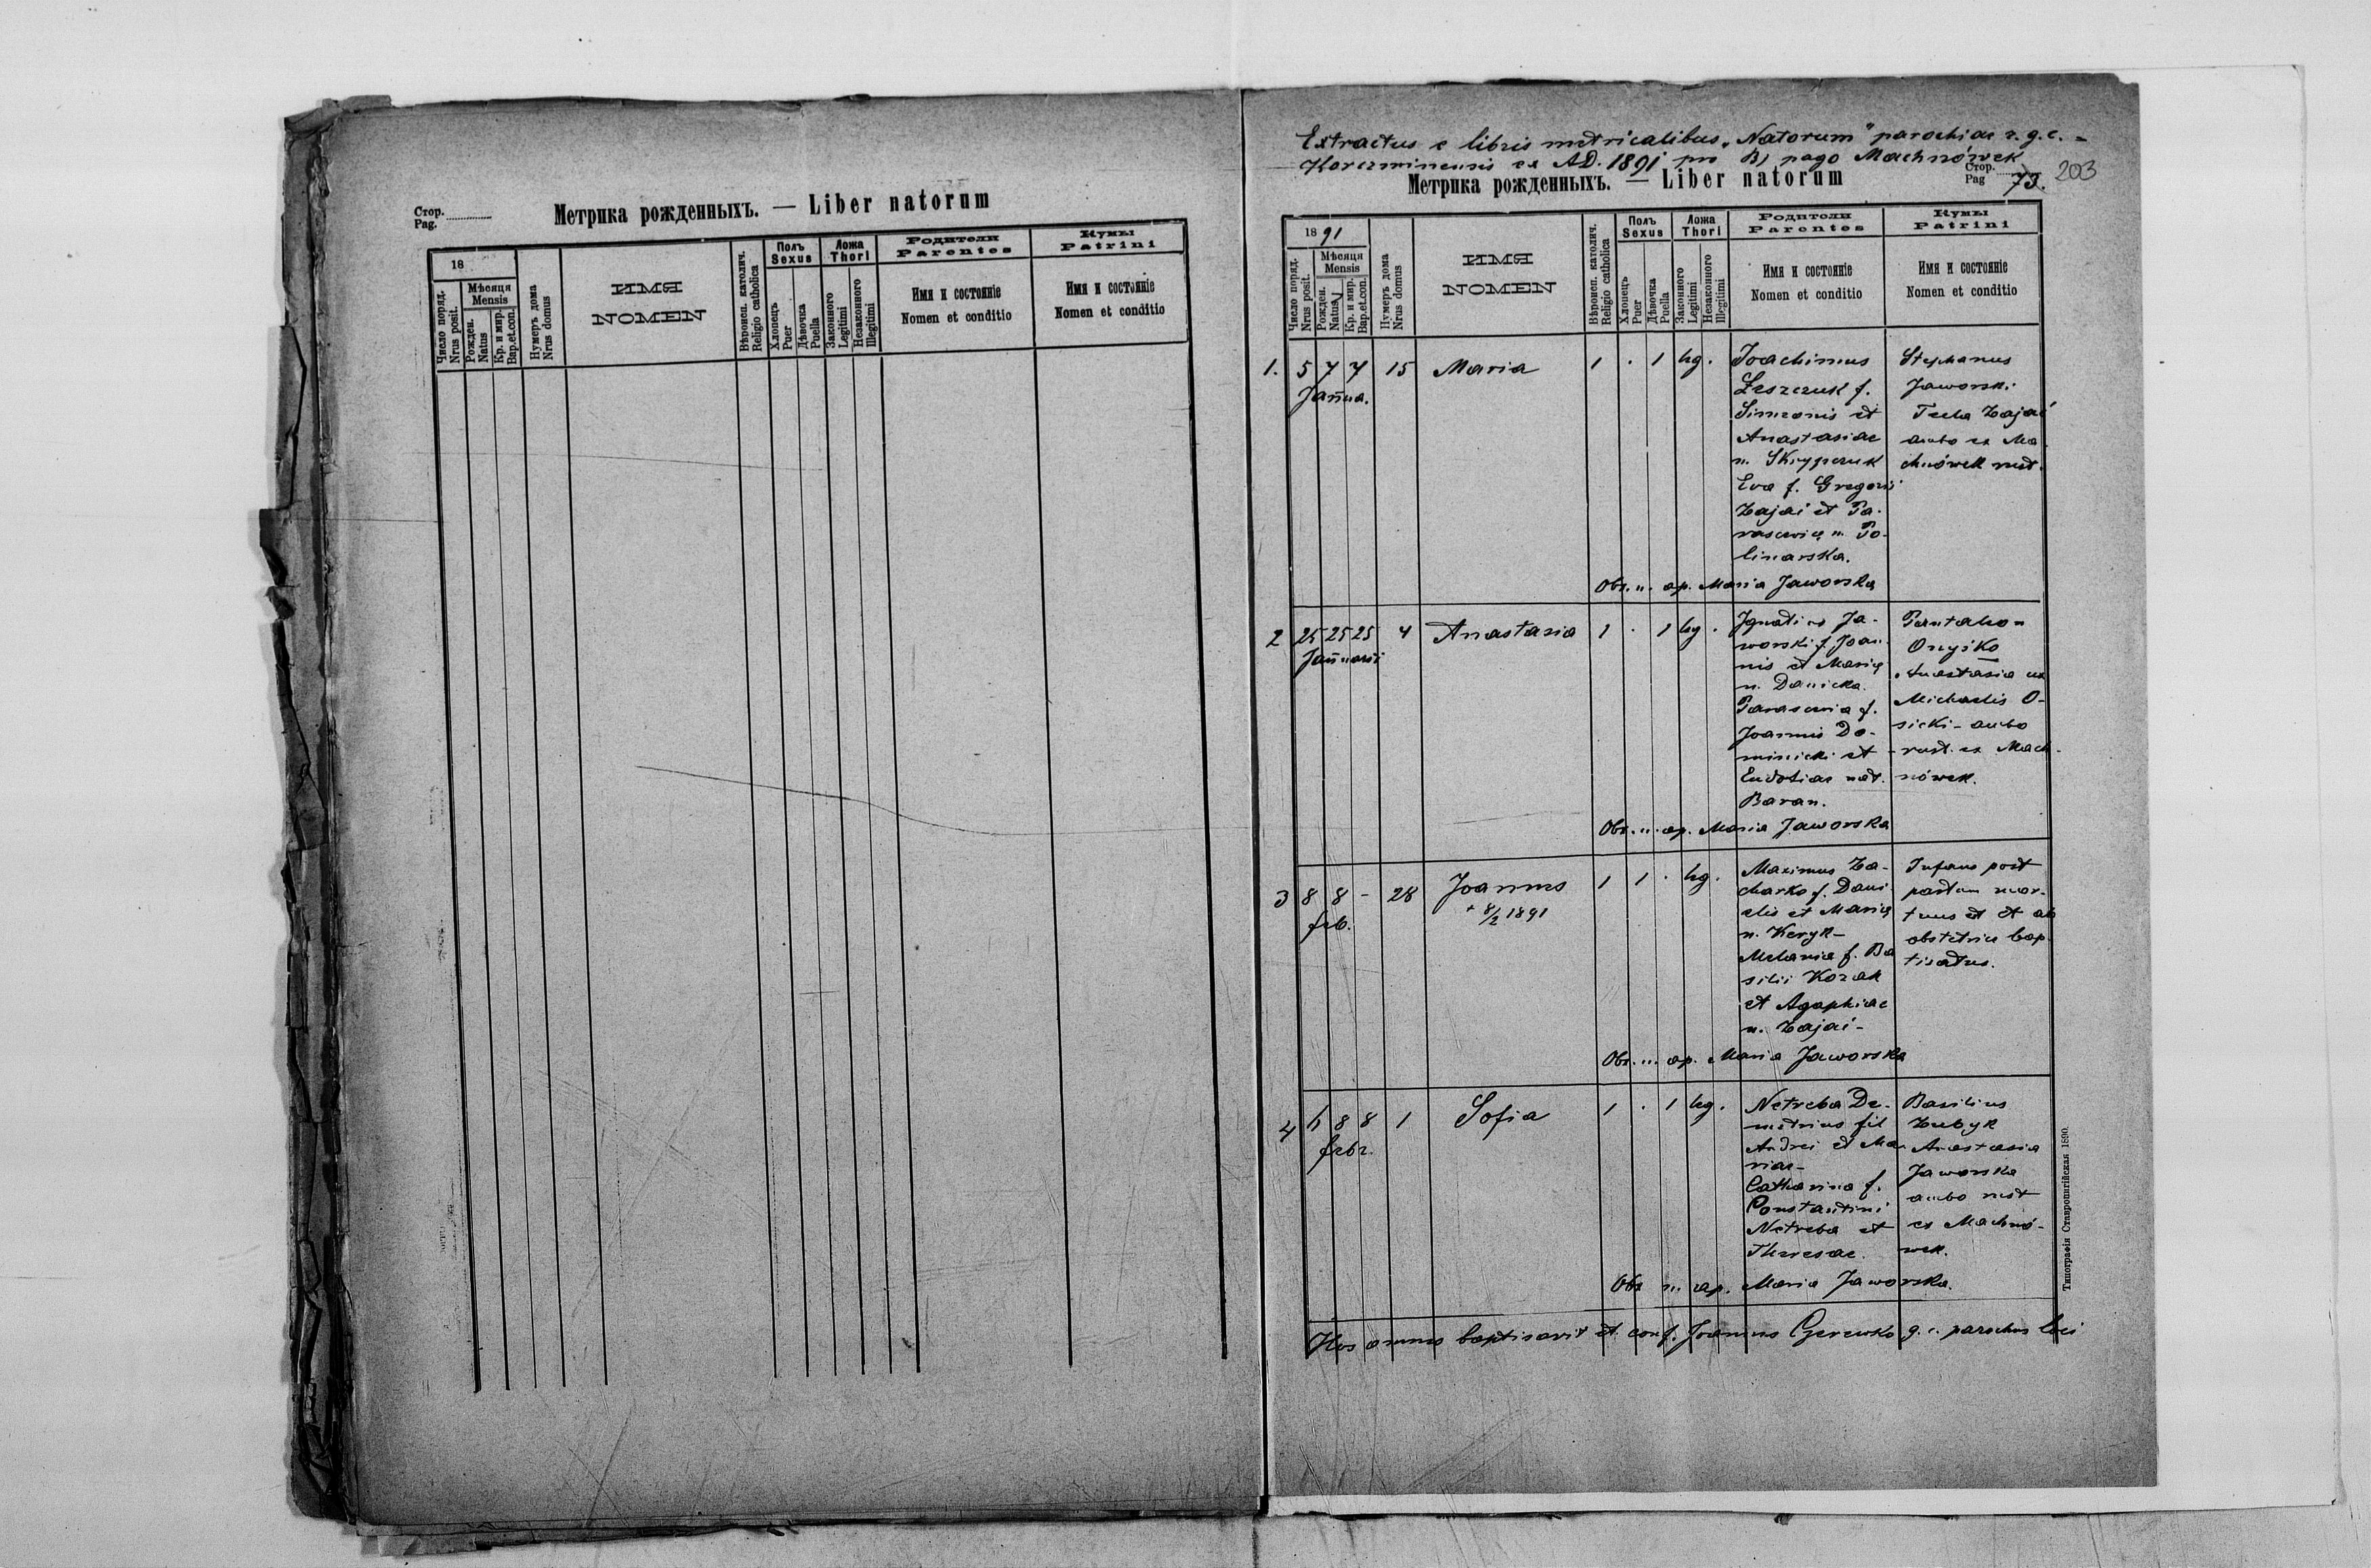 Стор.
Pag.
Метрика рожденныхъ. — Liber natorum
18
Число поряд.
Nrus posit.
Мѣсяця
Mensis
Рожден.
Natus
Кр. и мир.
Bap.et.con.
Нумеръ дома
Nrus domus
ИМЯ
NOMEN
Вѣроисп. католич.
Religio catholica
Полъ
Sexus
Хлопецъ
Puer
Дѣвочка
Puella
Ложа
Thori
Законного
Legitimi
Незаконного
Illegitimi
Родители
Parentes
Имя и состояніе
Nomen et conditio
Кумы
Patrini
Имя и состояніе
Nomen et conditio
Extractus e libris metricalibus „Natorum" parochiae r. g. c. -
Korczminensis ex AD. 1891 pro B) pago Machnówek
Метрика рожденныхъ. — Liber natorum
Стор.
Pag 73.
203
18 91
Число поряд.
Nrus posit.
Мѣсяця
Mensis
Рожден.
Natus
Кр. и мир.
Bap.et.con.
Нумеръ дома
Nrus domus
ИМЯ
NOMEN
Вѣроисп. католич.
Religio catholica
Полъ
Sexus
Хлопецъ
Puer
Дѣвочка
Puella
Ложа
Thori
Законного
Legitimi
Незаконного
Illegitimi
Родители
Parentes
Имя и состояніе
Nomen et conditio
Кумы
Patrini
Имя и состояніе
Nomen et conditio
1. 5 7 7 15 Maria 1 . 1 leg.
Janua.
Joachimus
Leszczuk f.
Simeonis et
Anastasiae
n. Skrypczuk
Eva f. Gregorii
Zajac et Pa-
rascevię n. Po-
linarska.
Stephanus
Jaworski
Tecla Zajac
ambo ex Ma-
chnówek rust.
Obs. n. ap. Maria Jaworska
2 25 25 25 4 Anastasia 1 . 1 leg.
Januarii
Ignatius Ja-
worski f. Joan-
nis et Marię
n. Danicka.
Parascevia f.
Joannis Do-
minicki et
Eudoxiae nat.
Baran.
Pantaleon
Onyśko
Anastasia ux
Michaelis O-
sicki - ambo
rust. ex Mach-
nówek.
Obs. n. ap. Maria Jaworska
3 8 8 - 28 Joannes 1 1 . leg.
feb.
+ 8/2 1891
Maximus Za-
charko f. Dani-
elis et Marię
n. Keryk -
Melania f. Ba
silii Kozak
et Agaphiae
n. Zajac -
Infans post
partum mor-
tuus et ab
obstetrice bap
tisatus.
Obs. n. ap. Maria Jaworska
4 8 8 1 Sofia 1 . 1 leg.
febr.
Netreba De-
metrius fil
Andrei et Ma-
riae -
Catharina f.
Constantini
Netreba et
Theresae.
Basilius
Zubyk
Anastasia
Jaworska
ambo rust
ex Machnó-
wek.
Obs n. ap. Maria Jaworska.
Hos omnes baptisavit et conf. Joannes g. c. parochus loci
Типографія Ставропигійская 1890.